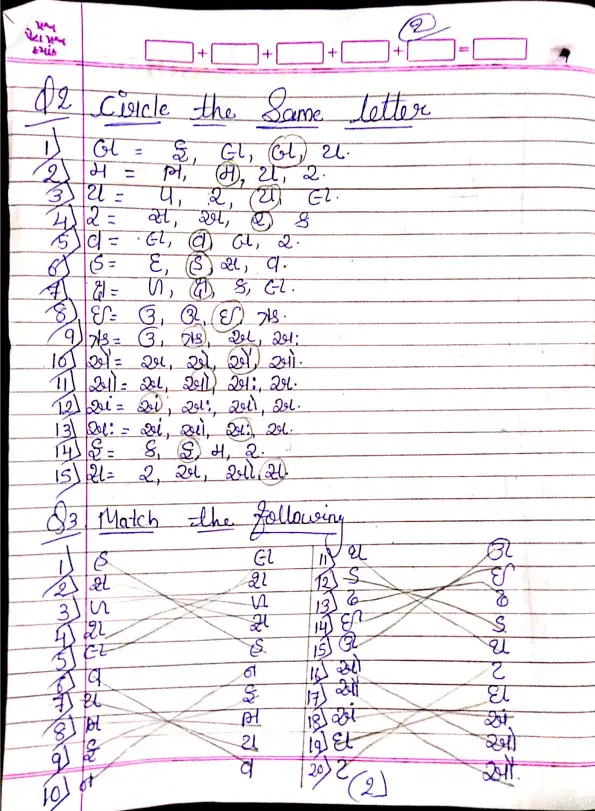 પ્રશ્ન
પેટા પ્રશ્ન
ક્રમાંક
2
+ + + + =
Q2 Circle the Same letter
1) બ = ફ, લ, બ, ય.
2) મ = ભ, મ, ય, ર.
3) ય = પ, ર, ય, લ.
4) ર = સ, અ, ર, ક
5) વ = લ, વ, બ, ર.
6) હ = દ, હ, સ, વ.
7) ક્ષ = ળ, ક્ષ, ક, લ.
8) ઈ = ઉ, ઊ, ઈ, ઋ.
9) ઋ = ઉ, ઋ, અ, અઃ
10) ઐ = અ, એ, ઐ, ઓ.
11) ઓ = અ, ઓ, અઃ, અ.
12) અં = અં, અઃ, ઓ, અ.
13) અઃ = અં, ઓ, અઃ, અ.
14) ફ = ક, ફ, મ, ર.
15) સ = ર, અ, ઓ, સ.
Q3 Match the following
1) હ લ 11) થ ઊ
2) સ શ 12) ડ ઈ
3) ળ ળ 13) ઠ ઠ
4) શ સ 14) ઈ ડ
5) લ હ 15) ઊ થ
6) વ ન 16) ઓ ટ
7) ય ફ 17) ઔ ઘ
8) ભ ભ 18) અં અં
9) ફ ય 19) ઘ ઓ
10) ન વ 20) ટ ઔ.
(2)